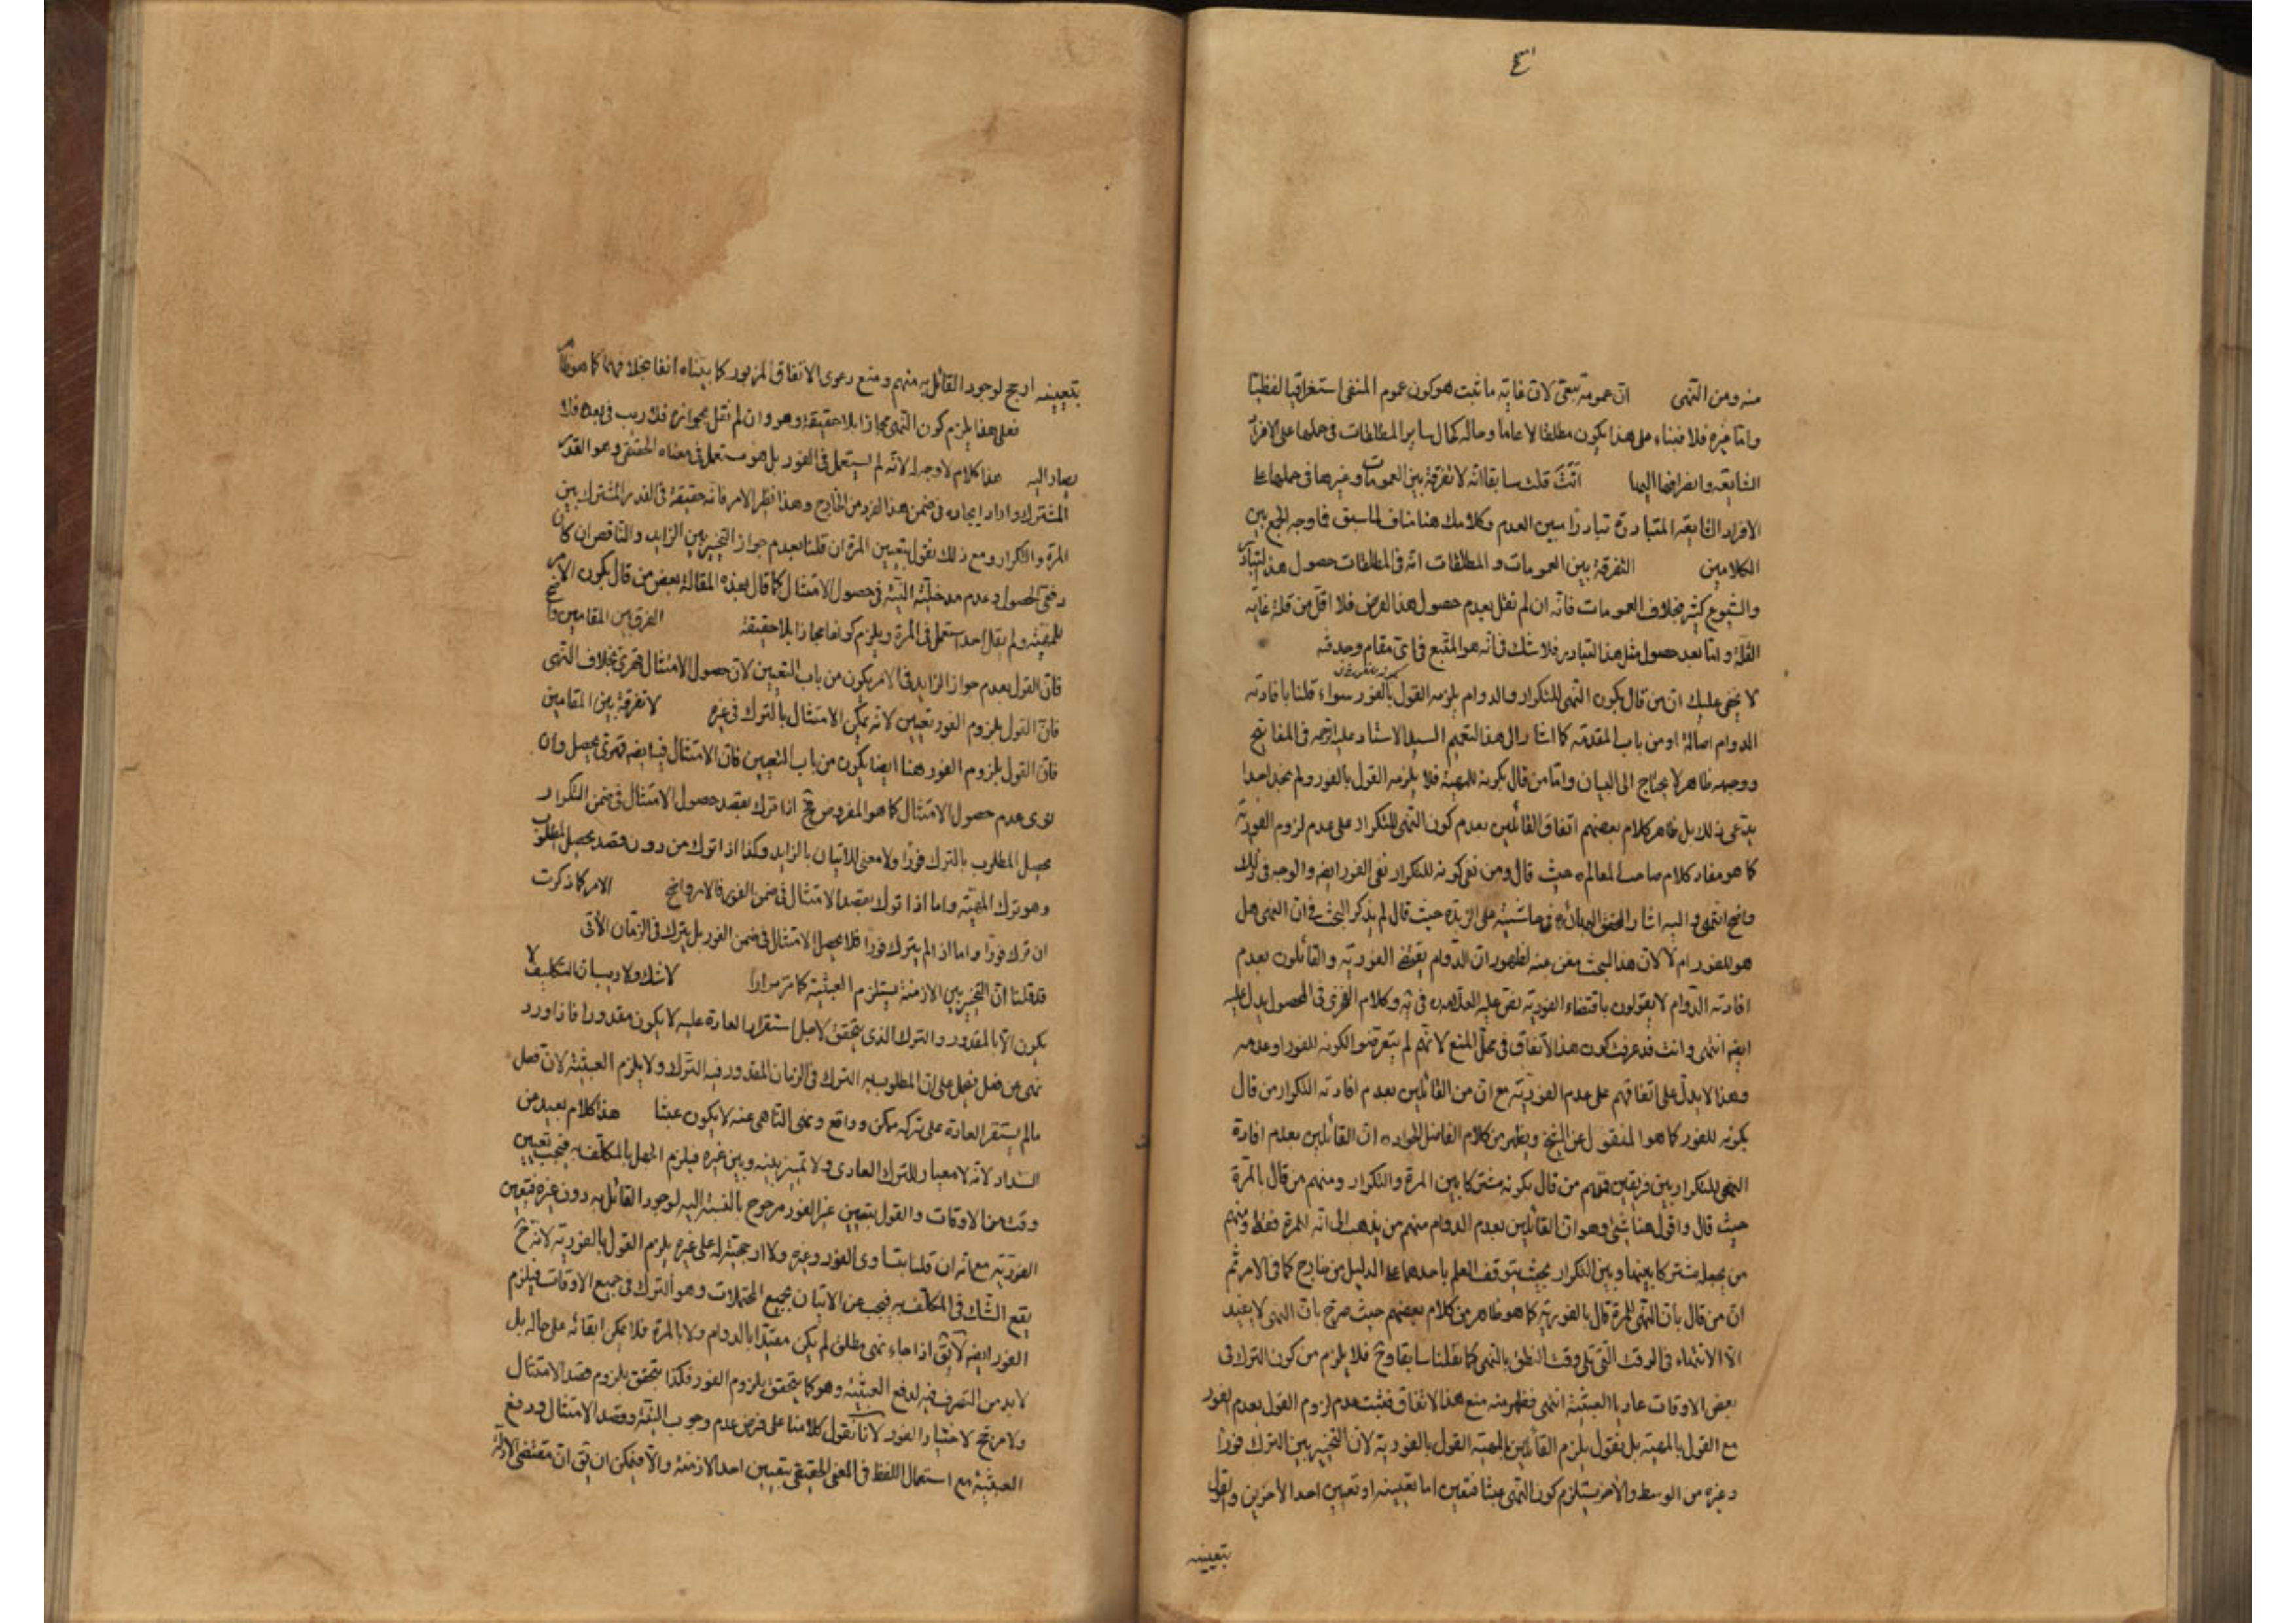 منه ومن النهى ان عمومه تبقى لان غاية ما ثبت هو كون عموم المنفى استغراقيا لفظيا
واما غيره فلا فبناء على هذا يكون مطلقا لا عاما وحاله كحال ساير المطلقات فى حملها على الافراد
الشايعة وانصرافها اليها انك قلت سابقا انه لا تفرقة بين العمومات وغيرها فى حملها على
الافراد الشايعة المتبادرة تبادرا مبين العدم وكلامك هنا مناف لما سبق فما وجه الجمع بين
الكلامين التفرقة بين العمومات و المطلقات انه فى المطلقات حصول هذا التبادر
والشيوع كثير بخلاف العمومات فانه ان لم نقل بعدم حصول هذا الفرض فلا اقل من قلة غاية
القلة واما بعد حصول مثل هذا التبادر فلا شك فى انه هو المتبع فى اى مقام وجد فيه
لا يخفى عليك ان من قال بكون النهى للتكرار والدوام يلزمه القول بالفور سواء قلنا بافادته
الدوام اصالة او من باب المقدمة كما اشار الى هذا التعميم السيد الاستاد عليه الرحمه فى المفاتيح
ووجهه ظاهر لا يحتاج الى البيان واما من قال بكونه للمهية فلا يلزمه القول بالفور ولم نجد احدا
يدعى ذلك بل ظاهر كلام بعضهم اتفاق القائلين بعدم كون النهى للتكرار على عدم لزوم الفورية
كما هو مفاد كلام صاحب المعالم ره حيث قال ومن نفى كونه للتكرار نفى الفور ايضه والوجه فى ذلك
واضح انتهى و اليه اشار المحقق فى حاشيته على الزبدة حيث قال لم يذكر البحث فى ان النهى هل
هو للفور ام لا لان هذا البحث مغن عنه لظهور ان الدوام يقتضى الفورية والقائلون بعدم
افادته الدوام لا يقولون باقتضاء الفورية نص عليه العلامه فى يه وكلام الفخرى فى المحصول يدل عليه
ايضه انتهى وانت قد عرفت كون هذا الاتفاق فى محل المنع لانهم لم يتعرضوا لكونه للفور او عدمه
وهذا لا يدل على اتفاقهم على عدم الفورية مع ان من القائلين بعدم افادته التكرار من قال
بكونه للفور كما هو المنقول عن الشيخ ويظهر من كلام الفاضل الجواد ره ان القائلين بعدم افادة
النهى للتكرار بين فريقين فمنهم من قال بكونه مشتركا بين المرة والتكرار ومنهم من قال بالمرة
حيث قال واقول هنا شئ وهو ان القائلين بعدم الدوام منهم من يذهب الى انه للمرة فقط ومنهم
من يجعله مشتركا بينها وبين التكرار بحيث يتوقف العلم باحدهما على الدليل من خارج كما فى الامر ثم
ان من قال بان النهى للمرة قال بالفورية كما هو ظاهر من كلام بعضهم حيث صرح بان النهى لا يفيد
الا الانتهاء فى الوقت التى تلى وقت النطق بالنهى كما نقلنا سابقا وح فلا يلزم من كون الترك فى
بعض الاوقات عاديا العبثية انتهى فظهر منه منع هذا الاتفاق فثبت عدم لزوم القول بعدم الفور
مع القول بالمهية بل نقول يلزم القائلين بالمهية القول بالفورية لان التخيير بين الترك فورا
وغيره من الوسط والآخر يستلزم كون النهى عبثا فتعين اما تعيينه او تعيين احد الآخرين والقول
بتعيينه
بتعيينه ارجح لوجود القائل به منهم و منع دعوى الاتفاق المزبور كما بيناه انفا بخلافهما كما هو ظاهر
فعلى هذا يلزم كون النهى مجازا بلا حقيقة وهو وان لم نقل بجوازه فلا ريب فى بعده فلا
يصار اليه هذا كلام لا وجه له لانه لم يستعمل فى الفور بل هو مستعمل فى معناه الحقيقى وهو القدر
المشترك واراد ايجاده فى ضمن هذا الفرد من الخارج وهذا نظير الامر فانه حقيقة فى القدر المشترك بين
المرة والتكرار ومع ذلك نقول بتعيين المرة ان قلنا بعدم جواز التخيير بين الزايد والناقص ان كان
دفعى الحصول وعدم مدخلية النية فى حصول الامتثال كما قال بهذه المقالة بعض من قال بكون الامر
للمهية ولم يقل احد استعمل فى المرة ويلزم كونها مجازا بلا حقيقة الفرق بين المقامين واضح
فان القول بعدم جواز الزايد فى الامر يكون من باب التعيين لان حصول الامتثال قهرى بخلاف النهى
فان القول بلزوم الفور تعيين لانه يمكن الامتثال بالترك فى غيره لا تفرقة بين المقامين
فان القول بلزوم الفور هنا ايضا يكون من باب التعيين فان الامتثال فيه ايضه قهرى يحصل وان
نوى عدم حصول الامتثال كما هو المفروض فح اذا ترك بقصد حصول الامتثال فى ضمن التكرار
يحصل المطلوب بالترك فورا ولا معنى للاتيان بالزايد وكذا اذا ترك من دون قصد يحصل المطلوب
وهو ترك المهية واما اذا ترك بقصد الامتثال فى ضمن الفور فالامر واضح الامر كما ذكرت
ان ترك فورا واما اذا لم يترك فورا فلا يحصل الامتثال فى ضمن الفور بل يترك فى الزمان الآتى
قد قلنا ان التخيير بين الازمنة يستلزم العبثية كما مر مرارا لا شك ولا ريب ان التكليف لا
يكون الا بالمقدور والترك الذى يتحقق لاجل استقرار العادة عليه لا يكون مقدورا فاذا ورد
نهى عن فعل نحمل على ان المطلوب به الترك فى الزمان المقدور فيه الترك ولا يلزم العبثية لان فعل
مالم يستقر العادة على تركه ممكن وواقع ونهى الناهى عنه لا يكون عبثا هذا كلام بعيد من
السداد لانه لا معيار للترك العادى ولا تميز بينه وبين غيره فيلزم الجهل بالمكلف به فيجب تعيين
وقت من الاوقات والقول بتعيين غير الفور مرجوح بالنسبة اليه لوجود القائل به دون غيره فتعين
الفورية مع انه ان قلنا بتساوى الفور وغيره ولا ارجحية له على غيره يلزم القول بالفورية لانه ح
يقع الشك فى المكلف به فيجب عن الاتيان بجميع المحتملات وهو الترك فى جميع الاوقات فيلزم
الفور ايضه لا يق اذا جاء نهى مطلق لم يكن مقيدا بالدوام ولا بالمرة فلا يمكن ابقائه على حاله بل
لابد من التصرف فيه لدفع العبثية وهو كما يتحقق بلزوم الفور فكذا يتحقق بلزوم قصد الامتثال
ولا مرجح لاختيار الفور لانا نقول كلامنا على فرض عدم وجوب النية وقصد الامتثال ودفع
العبثية مع استعمال اللفظ فى المعنى الحقيقى بتعيين احد الازمنة والا فيمكن ان يق ان مقتضى الادلة